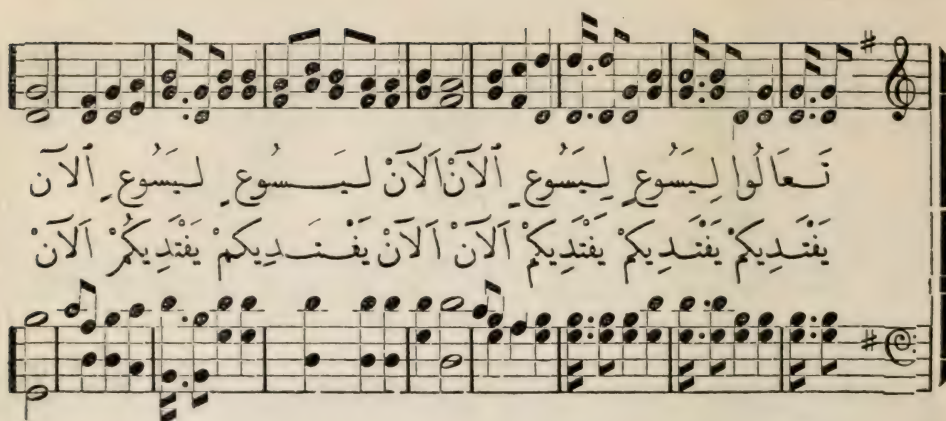 تَعَالُوا لِيَسُوعٍ لِيَسُوعٍ ٱلآنْ ٱلآنْ لِيَسُوعٍ لِيَسُوعٍ ٱلآن
يَفْتَدِيكمْ يَفْتَدِيكمْ يَفْتَدِيكمْ ٱلآنْ ٱلآنْ يَفْتَدِيكمْ يَفْتَدِيكُمْ ٱلآنْ